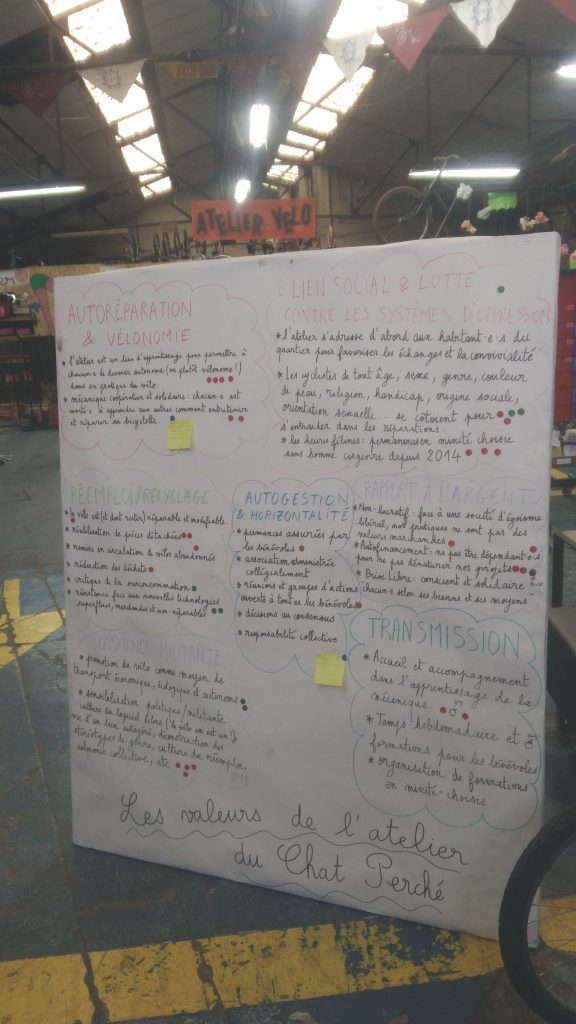 ATELIER VELO
AUTORÉPARATION
& VÉLONOMIE
* l'atelier est un lieu d'apprentissage pour permettre à
chacun·e de devenir autonome (ou plutôt vélonome !)
dans sa pratique du vélo.
* mécanique coopérative et solidaire : chacun·e est
invité·e à apprendre aux autres comment entretenir
et réparer sa bicyclette.
LIEN SOCIAL & LUTTE
CONTRE LES SYSTÈMES D'OPPRESSION
* l'atelier s'adresse d'abord aux habitant·e·s du
quartier pour favoriser les échanges et la convivialité
* Les cyclistes de tout âge, sexe, genre, couleur
de peau, religion, handicap, origine sociale,
orientation sexuelle... se côtoient pour
s'entraider dans les réparations.
* les heures félines : permanences en mixité choisie
sans homme cisgenre depuis 2014.
RÉEMPLOI/RECYCLAGE
* le vélo est (et doit rester) réparable et modifiable
* réutilisation de pièces détachées
* remise en circulation de vélos abandonnés
* réduction des déchets
* critique de la surconsommation
* résistance face aux nouvelles technologies
superflues, marchandes et non-réparables
AUTOGESTION
& HORIZONTALITÉ
* permanences assurées par
les bénévoles
* association administrée
collégialement
* réunions et groupes d'actions
ouverts à tout·es les bénévoles
* décisions au consensus
* responsabilité collective
RAPPORT A L'ARGENT
* Non-lucratif : face à une société d'égoïsme
libéral, nos pratiques ne sont pas des
valeurs marchandes
* Autofinancement : ne pas être dépendant·e·s
pour ne pas dénaturer nos projets
* Prix Libre : conscient et solidaire,
chacun·e selon ses besoins et ses moyens
CONSCIENCE MILITANTE
* promotion du vélo comme moyen de
transport économique, écologique et autonome
* sensibilisation politique/militante :
culture du logiciel libre (le vélo en est un !),
vie d'un lieu autogéré, déconstruction des
stéréotypes de genre, culture du réemploi,
autonomie collective, etc.
TRANSMISSION
* Accueil et accompagnement
dans l'apprentissage de la
mécanique.
* Temps hebdomadaire et
formations pour les bénévoles
* organisation de formations
en mixité-choisie
Les valeurs de l'atelier
du Chat Perché